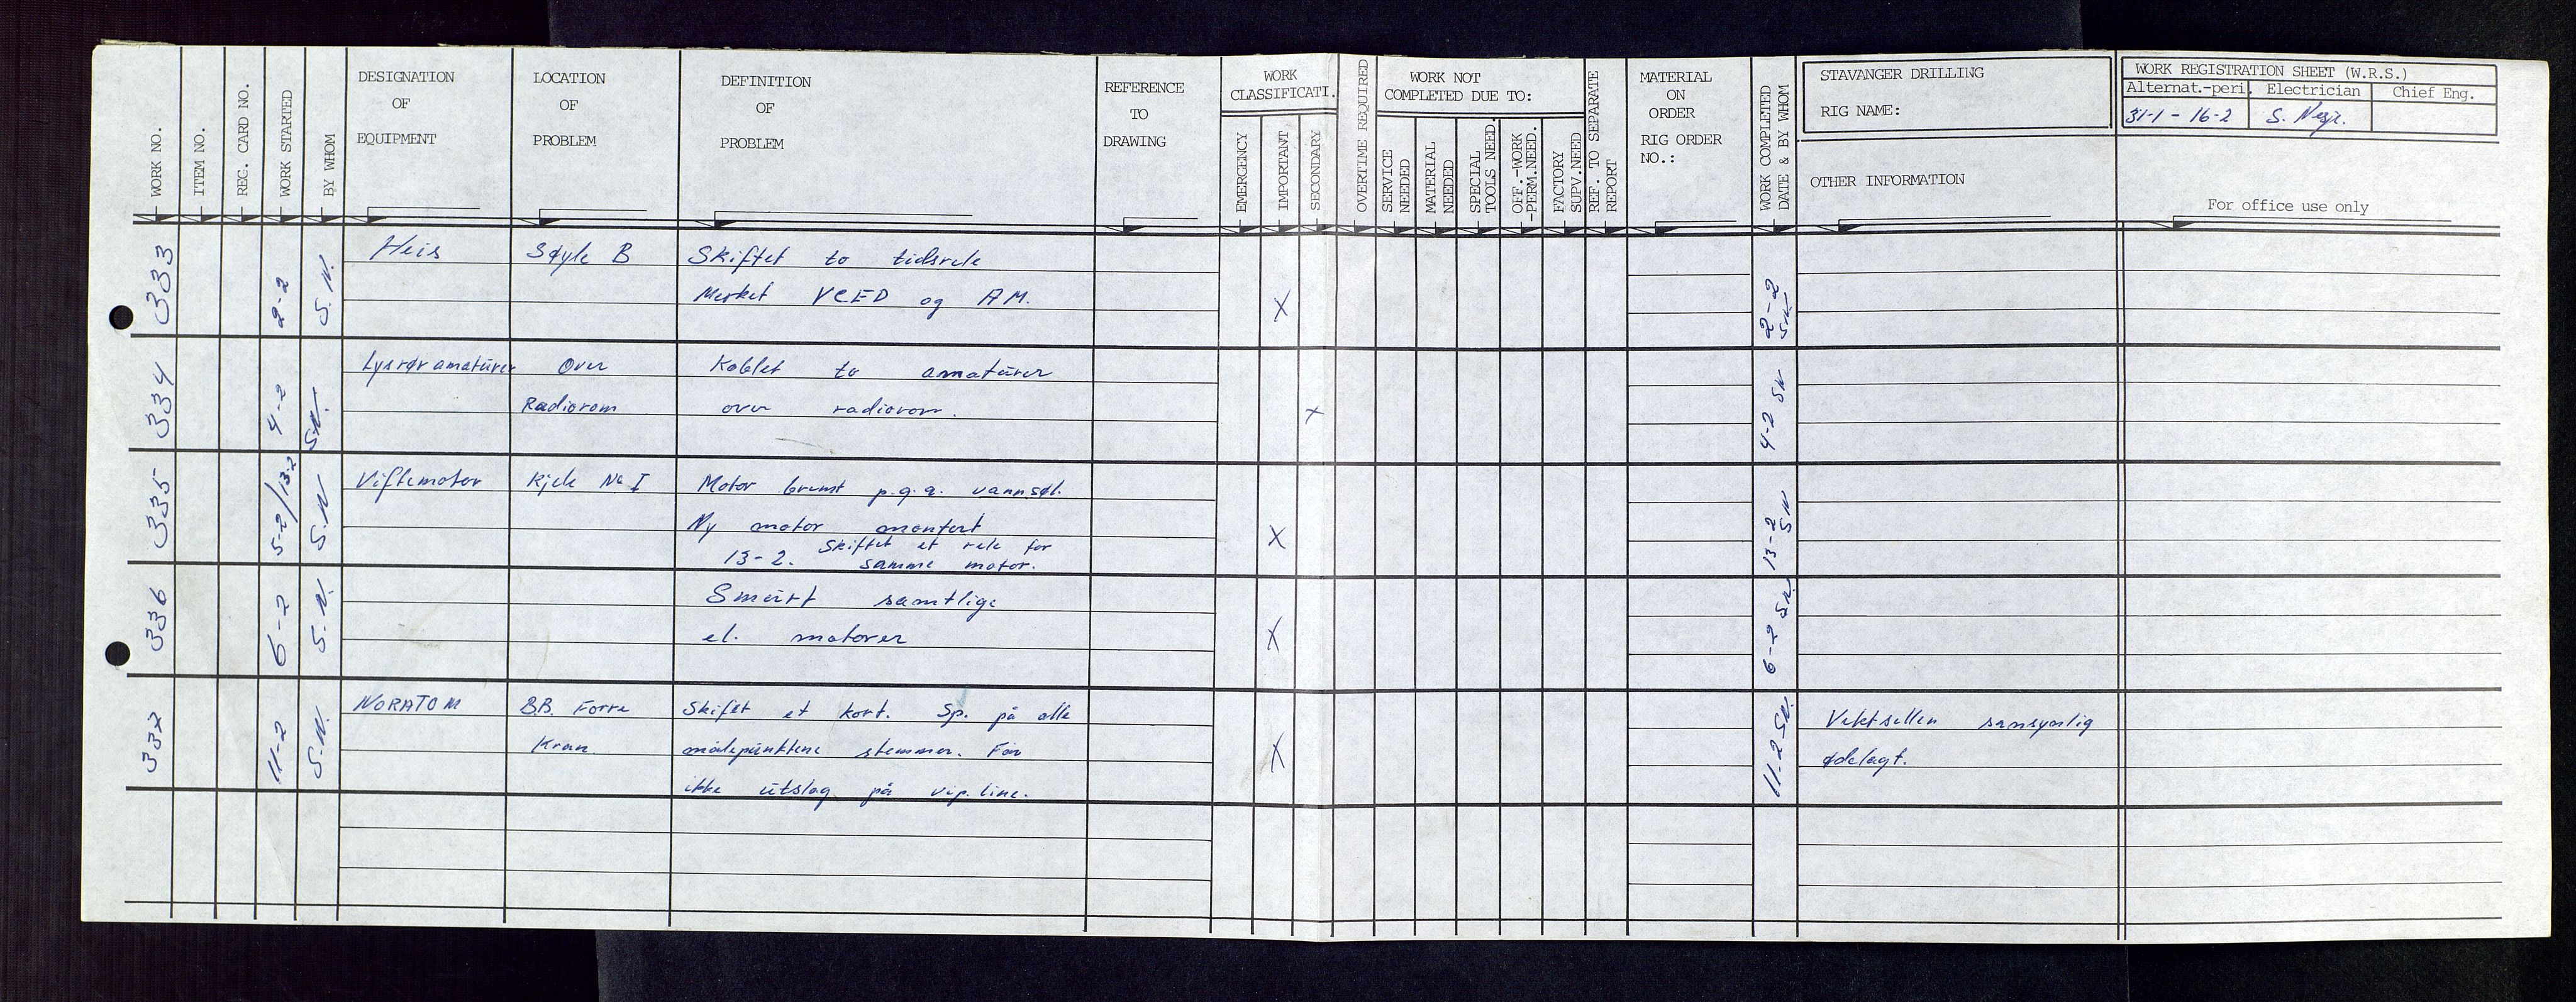 WORK NO.
ITEM NO.
REG. CARD NO.
WORK STARTED
BY WHOM
DESIGNATION
OF
EQUIPMENT
LOCATION
OF
PROBLEM
DEFINITION
OF
PROBLEM
REFERENCE
TO
DRAWING
WORK
CLASSIFICATI.
EMERGENCY
IMPORTANT
SECONDARY
OVERTIME REQUIRED
WORK NOT
COMPLETED DUE TO:
SERVICE
NEEDED
MATERIAL
NEEDED
SPECIAL
TOOLS NEED.
OFF.-WORK
-PERM.NEED.
FACTORY
SUPV.NEED
REF. TO SEPARATE
REPORT
MATERIAL
ON
ORDER
RIG ORDER
NO.:
WORK COMPLETED
DATE & BY WHOM
STAVANGER DRILLING
RIG NAME:
OTHER INFORMATION
WORK REGISTRATION SHEET (W.R.S.)
Alternat.-peri. Electrician Chief Eng.
31-1 - 16-2 S.
For office use only
333 2-2 S.N. Heis Søyle B Skiftet to tidsrele
Merket VCED og AM. X 2-2 SN
334 4-2 S.N. Lysrør amatürer Over Koblet to amatürer
Radiorom over radiorom. X 4-2 SN
335 5-2/13-2 S.N Viftemotor Kjele No I Motor brent p.g.a. vannsøl.
Ny motor montert X 13-2 SN
13-2. Skiftet et rele for
samme motor.
336 6-2 S.N. Smurt samtlige
el. motorer X 6-2 SN
337 11-2 S.N. NORATOM B.B. Forre Skift et kort. Sp. på alle Vektsellen sansynlig
Kran målepünktene stemmer. Får X 11-2 SN. ødelagt.
ikke ütslag på vip. line.